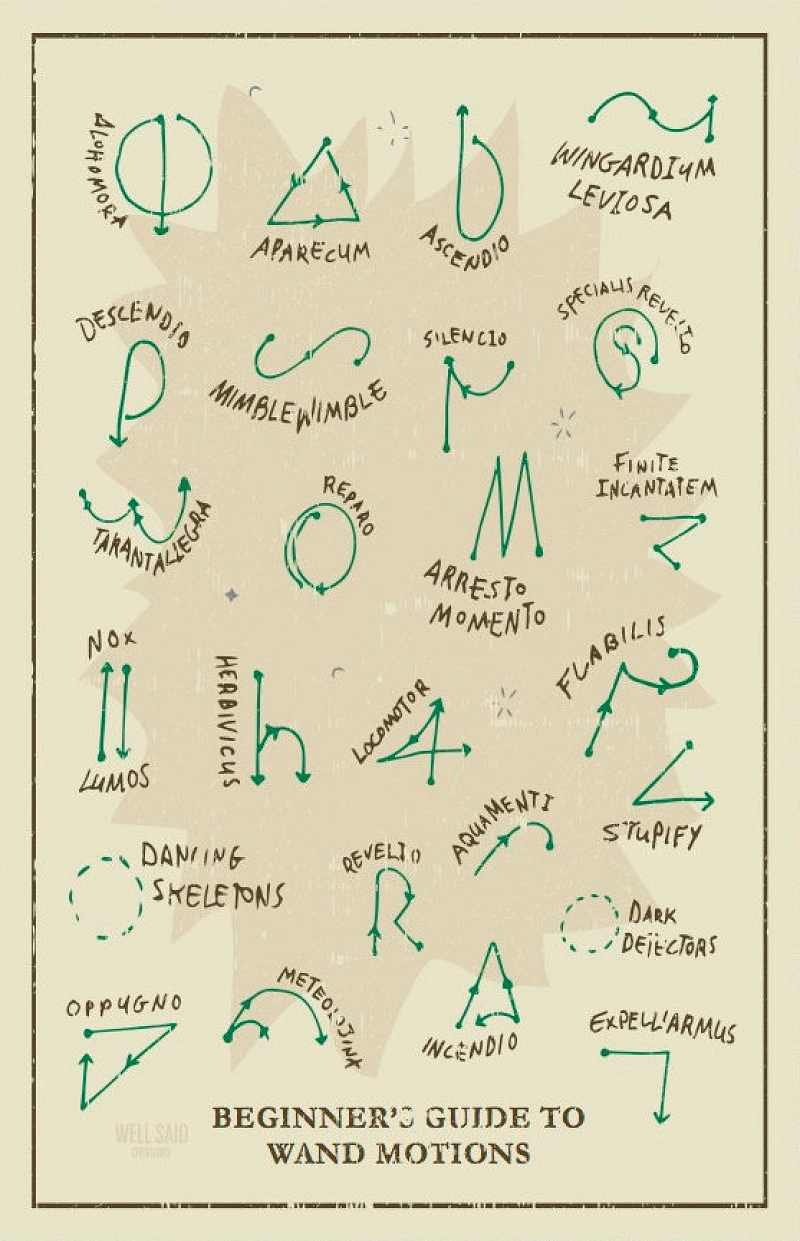 ALOHOMORA
APARECUM
ASCENDIO
WINGARDIUM
LEVIOSA
DESCENDIO
MIMBLEWIMBLE
SILENCIO
SPECIALIS REVELIO
TARANTALLEGRA
REPARO
ARRESTO
MOMENTO
FINITE
INCANTATEM
NOX
LUMOS
HERBIVICUS
LOCOMOTOR
FLABILIS
STUPIFY
AQUAMENTI
DANCING
SKELETONS
REVELIO
DARK
DETECTORS
OPPUGNO
METEOLOJINX
INCENDIO
EXPELLIARMUS
BEGINNER'S GUIDE TO
WAND MOTIONS
WELL SAID
CREATIONS